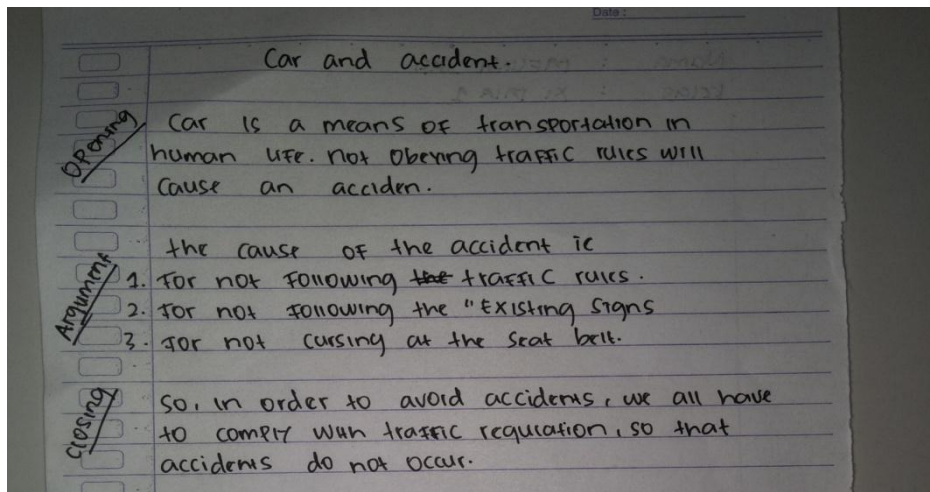 Date :
Car and accident.
Opening
Car is a means of transportation in
human life. not obeying traffic rules will
cause an acciden.
Argument
the cause of the accident ic
1. For not Following the traffic rules.
2. For not Following the "Existing Signs
3. For not cursing at the seat belt.
Closing
So, in order to avoid accidents, we all have
to comply with traffic regulation, so that
accidents do not occur.